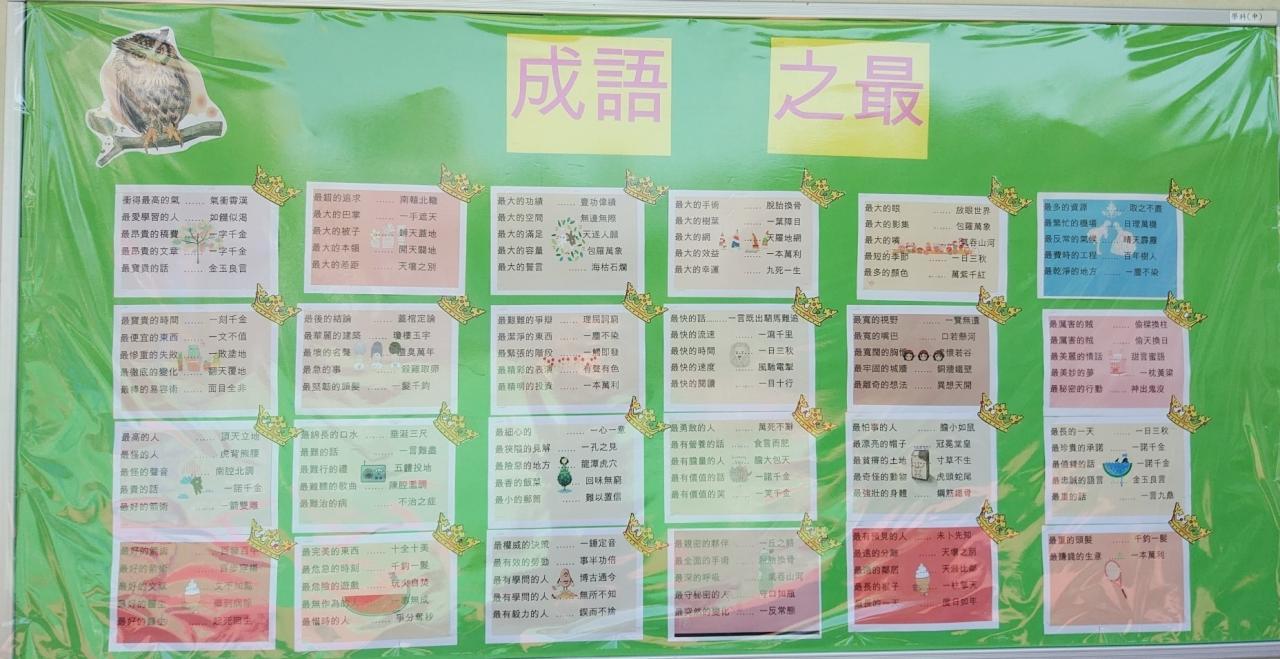 學科(中)
成語 之最
衝得最高的氣 …… 氣衝霄漢
最愛學習的人 …… 如饑似渴
最昂貴的稿費 一字千金
最昂貴的文章 一字千金
最寶貴的話 …… 金玉良言
最錯的追求 …… 南轅北轍
最大的巴掌 …… 一手遮天
最大的被子 翻天蓋地
最大的本領 開天闢地
最大的差距 …… 天壤之別
最大的功績 …… 豐功偉績
最大的空間 無邊無際
最大的滿足 天遂人願
最大的容量 包羅萬象
最大的誓言 …… 海枯石爛
最大的手術 …… 脫胎換骨
最大的樹葉 …… 一葉障目
最大的網 天羅地網
最大的效益 …… 一本萬利
最大的幸運 …… 九死一生
最大的眼 …… 放眼世界
最大的影集 …… 包羅萬象
最大的嘴 氣吞山河
最短的季節 …… 一日三秋
最多的顏色 …… 萬紫千紅
最多的資源 取之不盡
最繁忙的機場 日理萬機
最反常的氣候 晴天霹靂
最費時的工程 百年樹人
最乾淨的地方 …… 一塵不染
最寶貴的時間 …… 一刻千金
最便宜的東西 …… 一文不值
最慘重的失敗 一敗塗地
最徹底的變化 翻天覆地
最棒的易容術 面目全非
最後的結論 …… 蓋棺定論
最華麗的建築 瓊樓玉宇
最壞的名聲 遺臭萬年
最急的事 殺雞取卵
最堅韌的頭髮 …… 一髮千鈞
最艱難的爭辯 …… 理屈詞窮
最潔淨的東西 …… 一塵不染
最緊張的階段 一觸即發
最精彩的表演 有聲有色
最精明的投資 …… 一本萬利
最快的話……一言既出駟馬難追
最快的流速 …… 一瀉千里
最快的時間 一日三秋
最快的速度 風馳電掣
最快的閱讀 …… 一目十行
最寬的視野 …… 一覽無遺
最寬的嘴巴 …… 口若懸河
最寬闊的胸懷 虛懷若谷
最牢固的城牆 …… 銅牆鐵壁
最離奇的想法 …… 異想天開
最厲害的賊 …… 偷樑換柱
最厲害的賊 …… 偷天換日
最美麗的情話 甜言蜜語
最美妙的夢 一枕黃粱
最秘密的行動 …… 神出鬼沒
最高的人 …… 頂天立地
最怪的人 虎背熊腰
最怪的聲音 南腔北調
最貴的話 一諾千金
最好的箭術 …… 一箭雙鵰
最綿長的口水 …… 垂涎三尺
最難的話 一言難盡
最難行的禮 五體投地
最難聽的歌曲 陳腔濫調
最難治的病 …… 不治之症
最細心的 …… 一心一意
最狹隘的見解 一孔之見
最險惡的地方 龍潭虎穴
最香的飯菜 回味無窮
最小的郵筒 …… 難以置信
最勇敢的人 …… 萬死不辭
最有營養的話 …… 食言而肥
最有膽量的人 膽大包天
最有價值的話 一諾千金
最有價值的笑 …… 一笑千金
最怕事的人 …… 膽小如鼠
最漂亮的帽子 冠冕堂皇
最貧瘠的土地 寸草不生
最奇怪的動物 虎頭蛇尾
最強壯的身體 鋼筋鐵骨
最長的一天 …… 一日三秋
最珍貴的承諾 …… 一諾千金
最值錢的話 一諾千金
最忠誠的語言 金玉良言
最重的話 …… 一言九鼎
最好的箭術 百發百中
最好的箭術 百步穿楊
最好的文章 文不加點
最好的醫生 藥到病除
最好的醫生 起死回生
最完美的東西 …… 十全十美
最危急的時刻 千鈞一髮
最危險的遊戲 玩火自焚
最無作為的 一事無成
最惜時的人 …… 爭分奪秒
最權威的決策 …… 一錘定音
最有效的勞動 …… 事半功倍
最有學問的人 博古通今
最有學問的人 無所不知
最有毅力的人 …… 鍥而不捨
最親密的夥伴 …… 一丘之貉
最全面的手術 脫胎換骨
最深的呼吸 氣吞山河
最守秘密的人 守口如瓶
最突然的變化 …… 一反常態
最有預見的人 …… 未卜先知
最遠的分離 天壤之別
最遠的鄰居 天涯比鄰
最長的棍子 一柱擎天
最長的一天 …… 度日如年
最重的頭髮 …… 千鈞一髮
最賺錢的生意 一本萬利